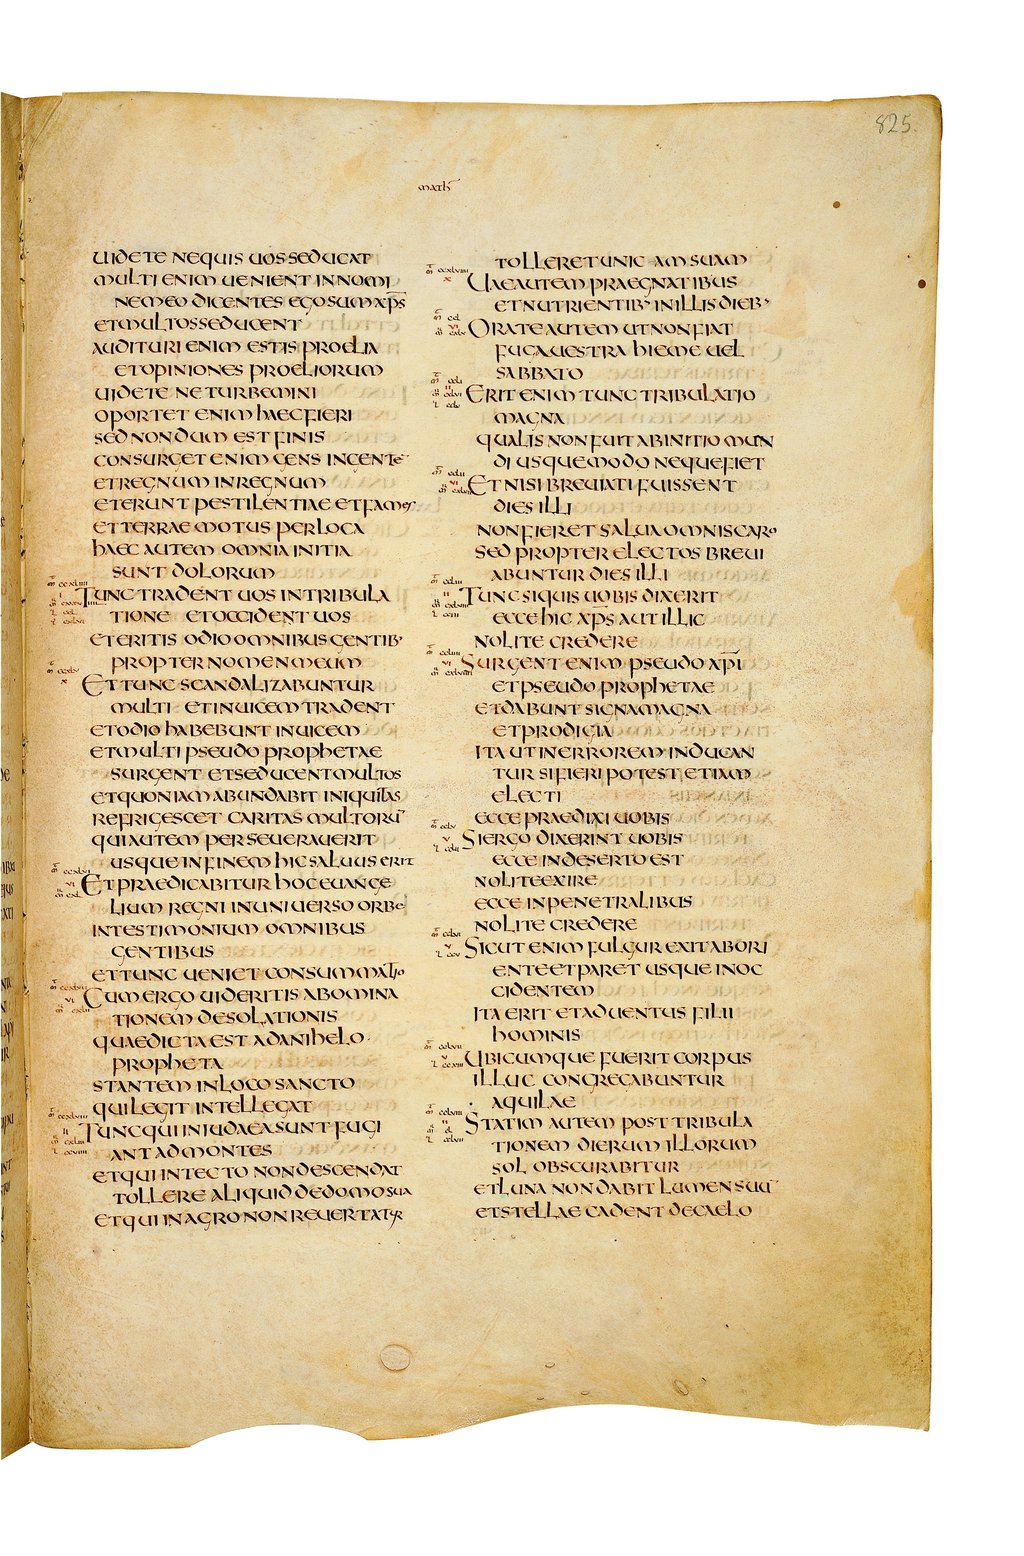 825.
math
UIDETE NEQUIS UOS SEDUCAT
MULTI ENIM UENIENT IN NOMI
NE MEO DICENTES EGO SUM XPS
ET MULTOS SEDUCENT
AUDITURI ENIM ESTIS PROELIA
ET OPINIONES PROELIORUM
UIDETE NE TURBEMINI
OPORTET ENIM HAEC FIERI
SED NONDUM EST FINIS
CONSURGET ENIM GENS IN GENTE
ET REGNUM IN REGNUM
ET ERUNT PESTILENTIAE ET FAMES
ET TERRAE MOTUS PER LOCA
HAEC AUTEM OMNIA INITIA
SUNT DOLORUM
TUNC TRADENT UOS IN TRIBULA
TIONE ET OCCIDENT UOS
ET ERITIS ODIO OMNIBUS GENTIB'
PROPTER NOMEN MEUM
ET TUNC SCANDALIZABUNTUR
MULTI ET INUICEM TRADENT
ET ODIO HABEBUNT INUICEM
ET MULTI PSEUDO PROPHETAE
SURGENT ET SEDUCENT MULTOS
ET QUONIAM ABUNDABIT INIQUITAS
REFRIGESCET CARITAS MULTORU
QUI AUTEM PERSEUERAUERIT
USQUE IN FINEM HIC SALUUS ERIT
ET PRAEDICABITUR HOC EUANGE
LIUM REGNI IN UNIUERSO ORBE
IN TESTIMONIUM OMNIBUS
GENTIBUS
ET TUNC UENIET CONSUMMATIO
CUM ERGO UIDERITIS ABOMINA
TIONEM DESOLATIONIS
QUAE DICTA EST A DANIHELO
PROPHETA
STANTEM IN LOCO SANCTO
QUI LEGIT INTELLEGAT
TUNC QUI IN IUDAEA SUNT FUGI
ANT AD MONTES
ET QUI IN TECTO NON DESCENDAT
TOLLERE ALIQUID DE DOMO SUA
ET QUI IN AGRO NON REUERTATUR
TOLLERE TUNICAM SUAM
UAE AUTEM PRAEGNATIBUS
ET NUTRIENTIB' IN ILLIS DIEB'
ORATE AUTEM UT NON FIAT
FUGA UESTRA HIEME UEL
SABBATO
ERIT ENIM TUNC TRIBULATIO
MAGNA
QUALIS NON FUIT AB INITIO MUN
DI USQUE MODO NEQUE FIET
ET NISI BREUIATI FUISSENT
DIES ILLI
NON FIERET SALUA OMNIS CARO
SED PROPTER ELECTOS BREUI
ABUNTUR DIES ILLI
TUNC SI QUIS UOBIS DIXERIT
ECCE HIC XPS AUT ILLIC
NOLITE CREDERE
SURGENT ENIM PSEUDO XPI
ET PSEUDO PROPHETAE
ET DABUNT SIGNA MAGNA
ET PRODIGIA
ITA UT IN ERROREM INDUCAN
TUR SI FIERI POTEST ETIAM
ELECTI
ECCE PRAEDIXI UOBIS
SI ERGO DIXERINT UOBIS
ECCE IN DESERTO EST
NOLITE EXIRE
ECCE IN PENETRALIBUS
NOLITE CREDERE
SICUT ENIM FULGUR EXIT AB ORI
ENTE ET PARET USQUE IN OC
CIDENTEM
ITA ERIT ET ADUENTUS FILII
HOMINIS
UBICUMQUE FUERIT CORPUS
ILLUC CONGREGABUNTUR
AQUILAE
STATIM AUTEM POST TRIBULA
TIONEM DIERUM ILLORUM
SOL OBSCURABITUR
ET LUNA NON DABIT LUMEN SUU
ET STELLAE CADENT DE CAELO